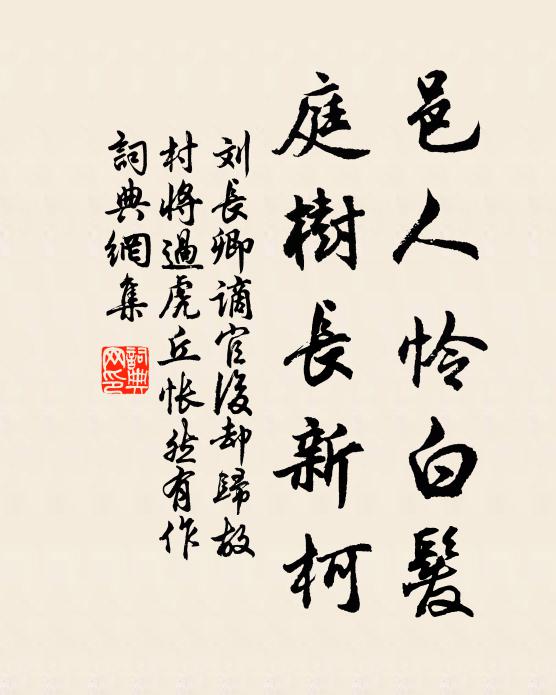 邑人怜白髮
庭樹長新柯
刘長卿謫官後却歸故
村將過虎丘悵然有作
詞典網集
詞典网印